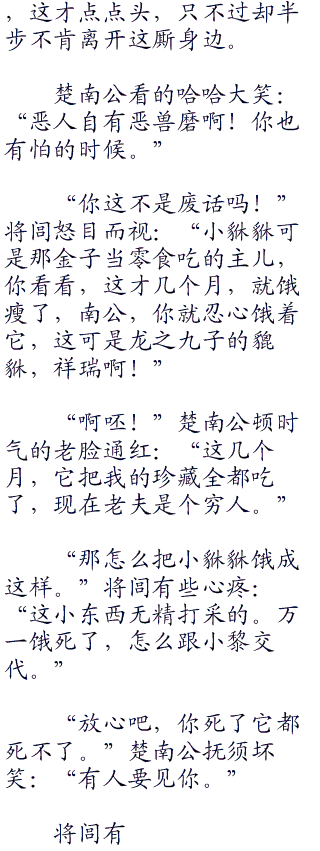 ，这才点点头，只不过却半
步不肯离开这厮身边。
楚南公看的哈哈大笑：
“恶人自有恶兽磨啊！你也
有怕的时候。”
“你这不是废话吗！”
将闾怒目而视：“小貅貅可
是那金子当零食吃的主儿，
你看看，这才几个月，就饿
瘦了，南公，你就忍心饿着
它，这可是龙之九子的貔
貅，祥瑞啊！”
“啊呸！”楚南公顿时
气的老脸通红：“这几个
月，它把我的珍藏全都吃
了，现在老夫是个穷人。”
“那怎么把小貅貅饿成
这样。”将闾有些心疼：
“这小东西无精打采的。万
一饿死了，怎么跟小黎交
代。”
“放心吧，你死了它都
死不了。”楚南公抚须坏
笑：“有人要见你。”
将闾有